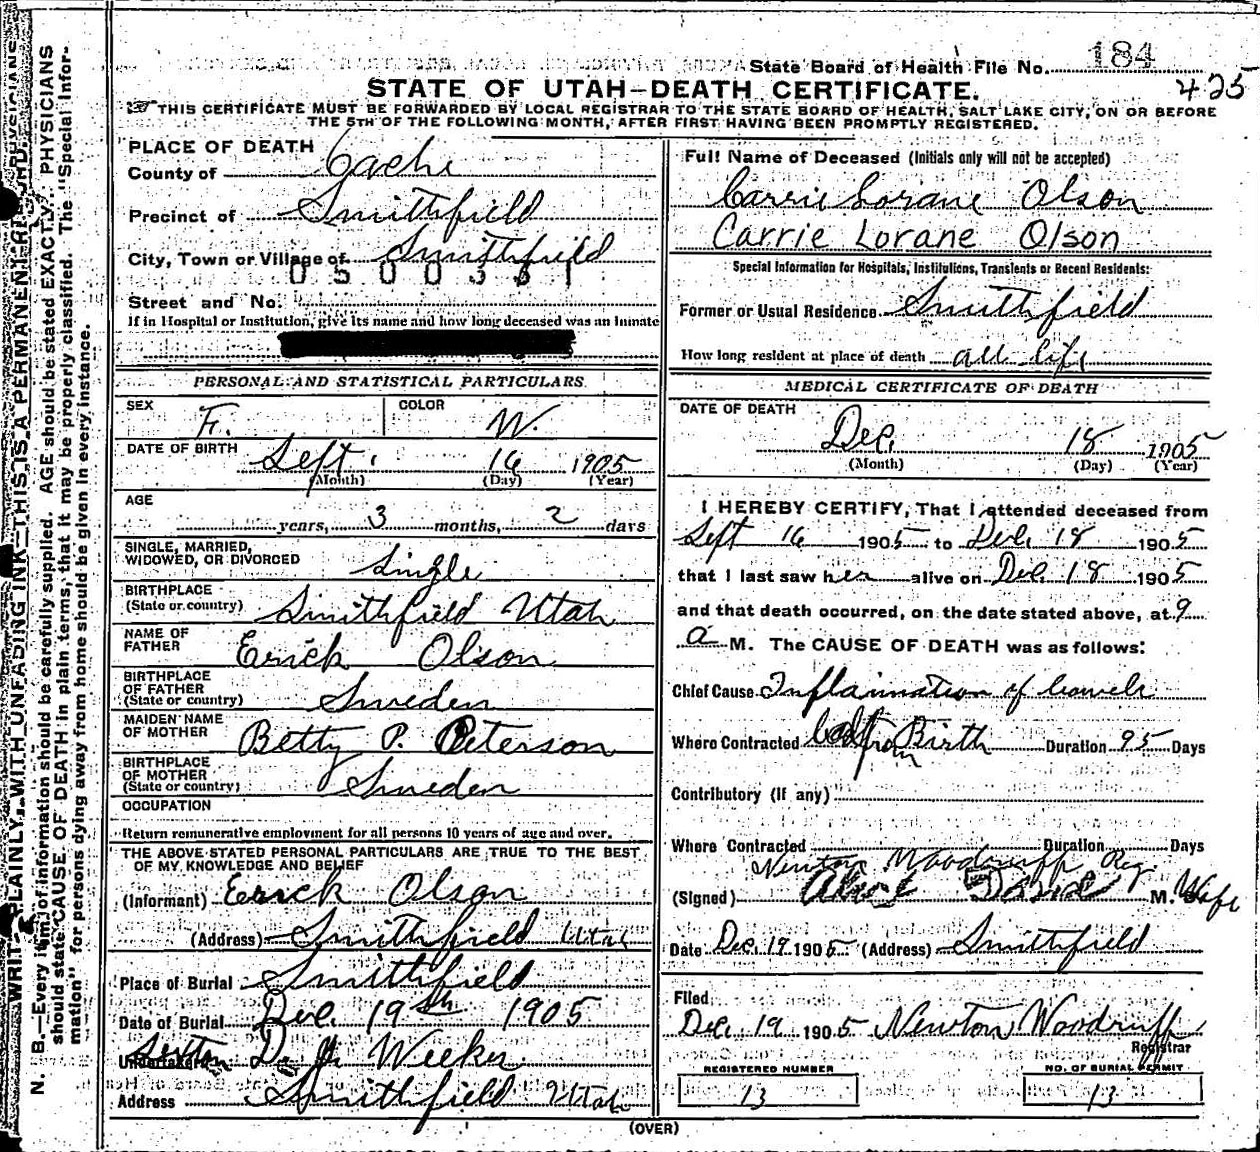 State Board of Health File No. 184
425
STATE OF UTAH-DEATH CERTIFICATE.
THIS CERTIFICATE MUST BE FORWARDED BY LOCAL REGISTRAR TO THE STATE BOARD OF HEALTH, SALT LAKE CITY, ON OR BEFORE
THE 5TH OF THE FOLLOWING MONTH, AFTER FIRST HAVING BEEN PROMPTLY REGISTERED.
N. B.—Every item of information should be carefully supplied. AGE should be stated EXACTLY. PHYSICIANS
should state CAUSE OF DEATH in plain terms, that it may be properly classified. The "Special Infor-
mation" for persons dying away from home should be given in every instance.
WRITE PLAINLY WITH UNFADING INK—THIS IS A PERMANENT RECORD.
PLACE OF DEATH
County of Cache
Precinct of Smithfield
City, Town or Village of Smithfield
0500361
Street and No.
If in Hospital or Institution, give its name and how long deceased was an inmate
PERSONAL AND STATISTICAL PARTICULARS
SEX F. COLOR W.
DATE OF BIRTH Sept. 16 1905
(Month) (Day) (Year)
AGE
years, 3 months, 2 days
SINGLE, MARRIED,
WIDOWED, OR DIVORCED Single
BIRTHPLACE
(State or country) Smithfield Utah
NAME OF
FATHER Erick Olson
BIRTHPLACE
OF FATHER
(State or country) Sweden
MAIDEN NAME
OF MOTHER Betty P. Peterson
BIRTHPLACE
OF MOTHER
(State or country) Sweden
OCCUPATION
Return remunerative employment for all persons 10 years of age and over.
THE ABOVE STATED PERSONAL PARTICULARS ARE TRUE TO THE BEST
OF MY KNOWLEDGE AND BELIEF
(Informant) Erick Olson
(Address) Smithfield Utah
Place of Burial Smithfield
Date of Burial Dec. 19th 1905
Sexton
Undertaker Weeker
Address Smithfield Utah
Full Name of Deceased (Initials only will not be accepted)
Carrie Lorane Olson
Carrie Lorane Olson
Special Information for Hospitals, Institutions, Transients or Recent Residents:
Former or Usual Residence Smithfield
How long resident at place of death all life
MEDICAL CERTIFICATE OF DEATH
DATE OF DEATH
Dec. 18 1905
(Month) (Day) (Year)
I HEREBY CERTIFY, That I attended deceased from
Sept 16 1905 to Dec. 18 1905
that I last saw her alive on Dec. 18 1905
and that death occurred, on the date stated above, at 9
a M. The CAUSE OF DEATH was as follows:
Chief Cause Inflamation of bowels
Where Contracted from Birth Duration 95 Days
Contributory (if any)
Where Contracted Duration Days
Newton Woodruff Reg.
(Signed) M. Wife
Date Dec. 19 1905 (Address) Smithfield
Filed
Dec. 19 1905 Newton Woodruff
Registrar
REGISTERED NUMBER
13
NO. OF BURIAL PERMIT
13
(OVER)